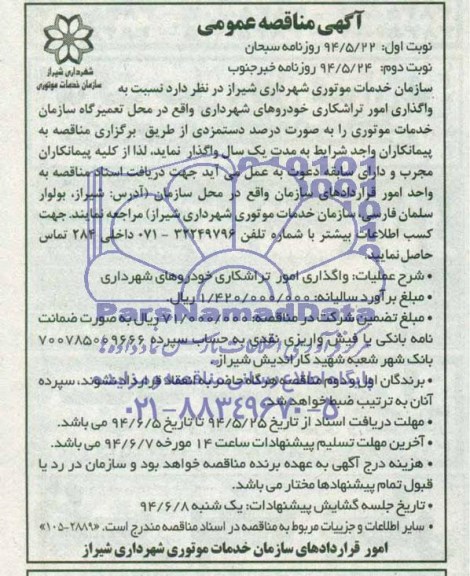 آگهی مناقصه عمومی
نوبت اول: ۹۴/۵/۲۲ روزنامه سبحان
نوبت دوم: ۹۴/۵/۲۴ روزنامه خبرجنوب
شهرداری شیراز
سازمان خدمات موتوری
سازمان خدمات موتوری شهرداری شیراز در نظر دارد نسبت به
واگذاری امور تراشکاری خودروهای شهرداری واقع در محل تعمیرگاه سازمان
خدمات موتوری را به صورت درصد دستمزدی از طریق برگزاری مناقصه به
پیمانکاران واجد شرایط به مدت یک سال واگذار نماید، لذا از کلیه پیمانکاران
مجرب و دارای سابقه دعوت به عمل می آید جهت دریافت اسناد مناقصه به
واحد امور قراردادهای سازمان واقع در محل سازمان (آدرس: شیراز، بولوار
سلمان فارسی، سازمان خدمات موتوری شهرداری شیراز) مراجعه نمایند. جهت
کسب اطلاعات بیشتر با شماره تلفن ۳۲۳۴۹۷۹۶ - ۰۷۱ داخلی ۲۸۴ تماس
حاصل نمایید.
• شرح عملیات: واگذاری امور تراشکاری خودروهای شهرداری
• مبلغ برآورد سالیانه: ۱/۴۲۰/۰۰۰/۰۰۰ ریال.
• مبلغ تضمین شرکت در مناقصه: ۷۱/۰۰۰/۰۰۰ ریال به صورت ضمانت
نامه بانکی یا فیش واریزی نقدی به حساب سپرده ۷۰۰۷۸۵۰۰۹۶۶۶
بانک شهر شعبه شهید کاراندیش شیراز.
• برندگان اول و دوم مناقصه هرگاه حاضر به انعقاد قرارداد نشوند، سپرده
آنان به ترتیب ضبط خواهد شد.
• مهلت دریافت اسناد از تاریخ ۹۴/۵/۲۵ تا تاریخ ۹۴/۶/۵ می باشد.
• آخرین مهلت تسلیم پیشنهادات ساعت ۱۴ مورخه ۹۴/۶/۷ می باشد.
• هزینه درج آگهی به عهده برنده مناقصه خواهد بود و سازمان در رد یا
قبول تمام پیشنهادها مختار می باشد.
• تاریخ جلسه گشایش پیشنهادات: یک شنبه ۹۴/۶/۸
• سایر اطلاعات و جزییات مربوط به مناقصه در اسناد مناقصه مندرج است. «۲۸۸۹-۱۰۵»
امور قراردادهای سازمان خدمات موتوری شهرداری شیراز
ParsNamadData
پایگاه اطلاع رسانی مناقصه و مزایده
۰۲۱-۸۸۳۴۹۶۷۰-۵